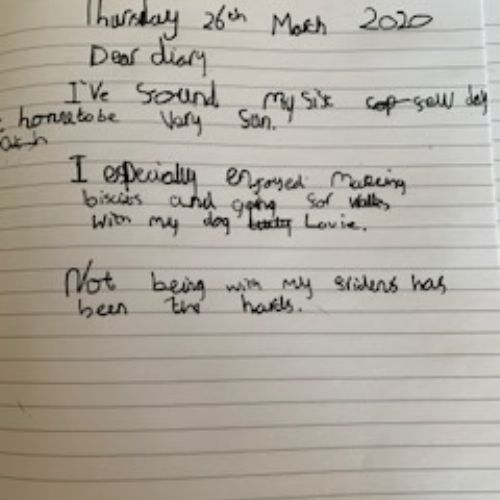 Thursday 26th March 2020
Dear diary
I've sound my six day
home to be Vary Sun.
I especially enjoyed making
biscuits and going sor walks,
with my dog Louie.
Not being with my sridens has
been the hards.